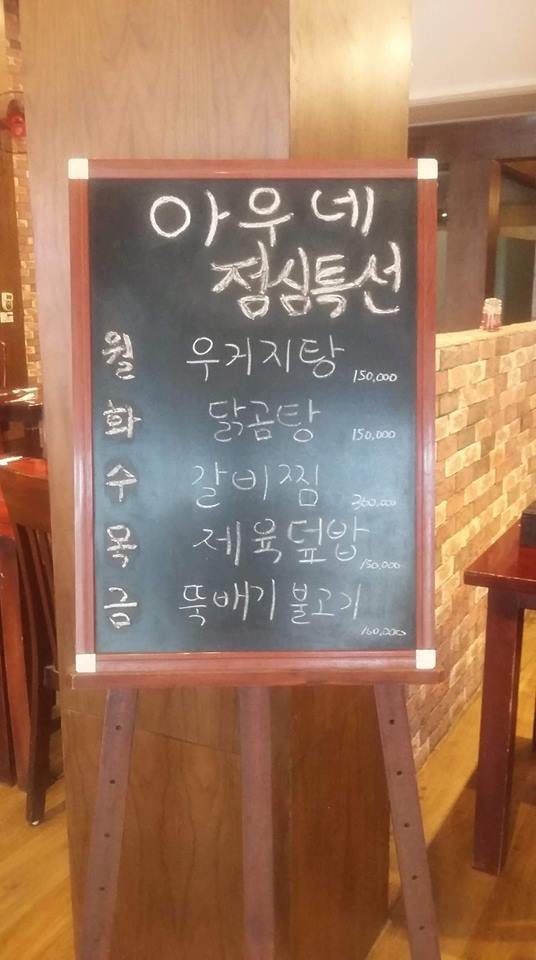 아우네
점심특선
월 우거지탕 150,000
화 닭곰탕 150,000
수 갈비찜 360,000
목 제육덮밥 150,000
금 뚝배기 불고기 160,000